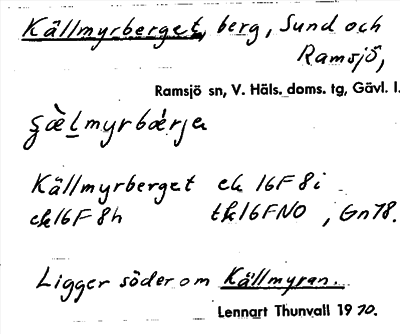 Källmyrberget, berg, Sund och
Ramsjö,
Ramsjö sn, V. Häls. doms. tg, Gävl. l.
Källmyrberget ek 16F 8i
ek16F 8h tk16FNO , Gn78.
Ligger söder om Källmyran.
Lennart Thunvall 1970.